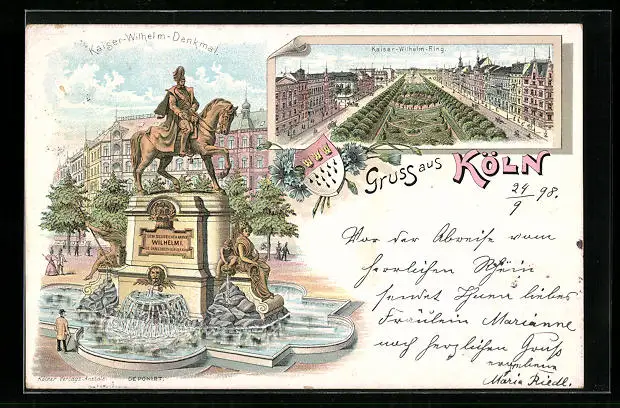 Kaiser-Wilhelm-Denkmal.
Kaiser-Wilhelm-Ring.
Gruss aus KÖLN
24/9 98.
WILHELM I.
Vor der Abreise vom
herrlichen Rhein
sendet Ihnen liebes
Fräulein Marianne
noch herzlichen Gruß
ergebene
Maria Riedl.
Kölner Verlags-Anstalt
DEPONIRT.